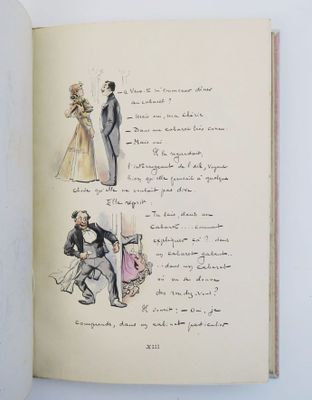 — Veux-tu m'emmener dîner
au cabaret ?
— Mais oui, ma chérie
— Dans un cabaret très connu.
— Mais oui
Il la regardait,
l'interrogeant de l'œil, voyant
bien qu'elle pensait à quelque
chose qu'elle ne voulait pas dire.
Elle reprit :
— Tu sais, dans un
cabaret... comment
expliquer ça ?... dans
un cabaret galant...
... dans un cabaret
où on se donne
des rendez-vous ?
Il sourit : — Oui, je
comprends, dans un cabinet particulier
XIII